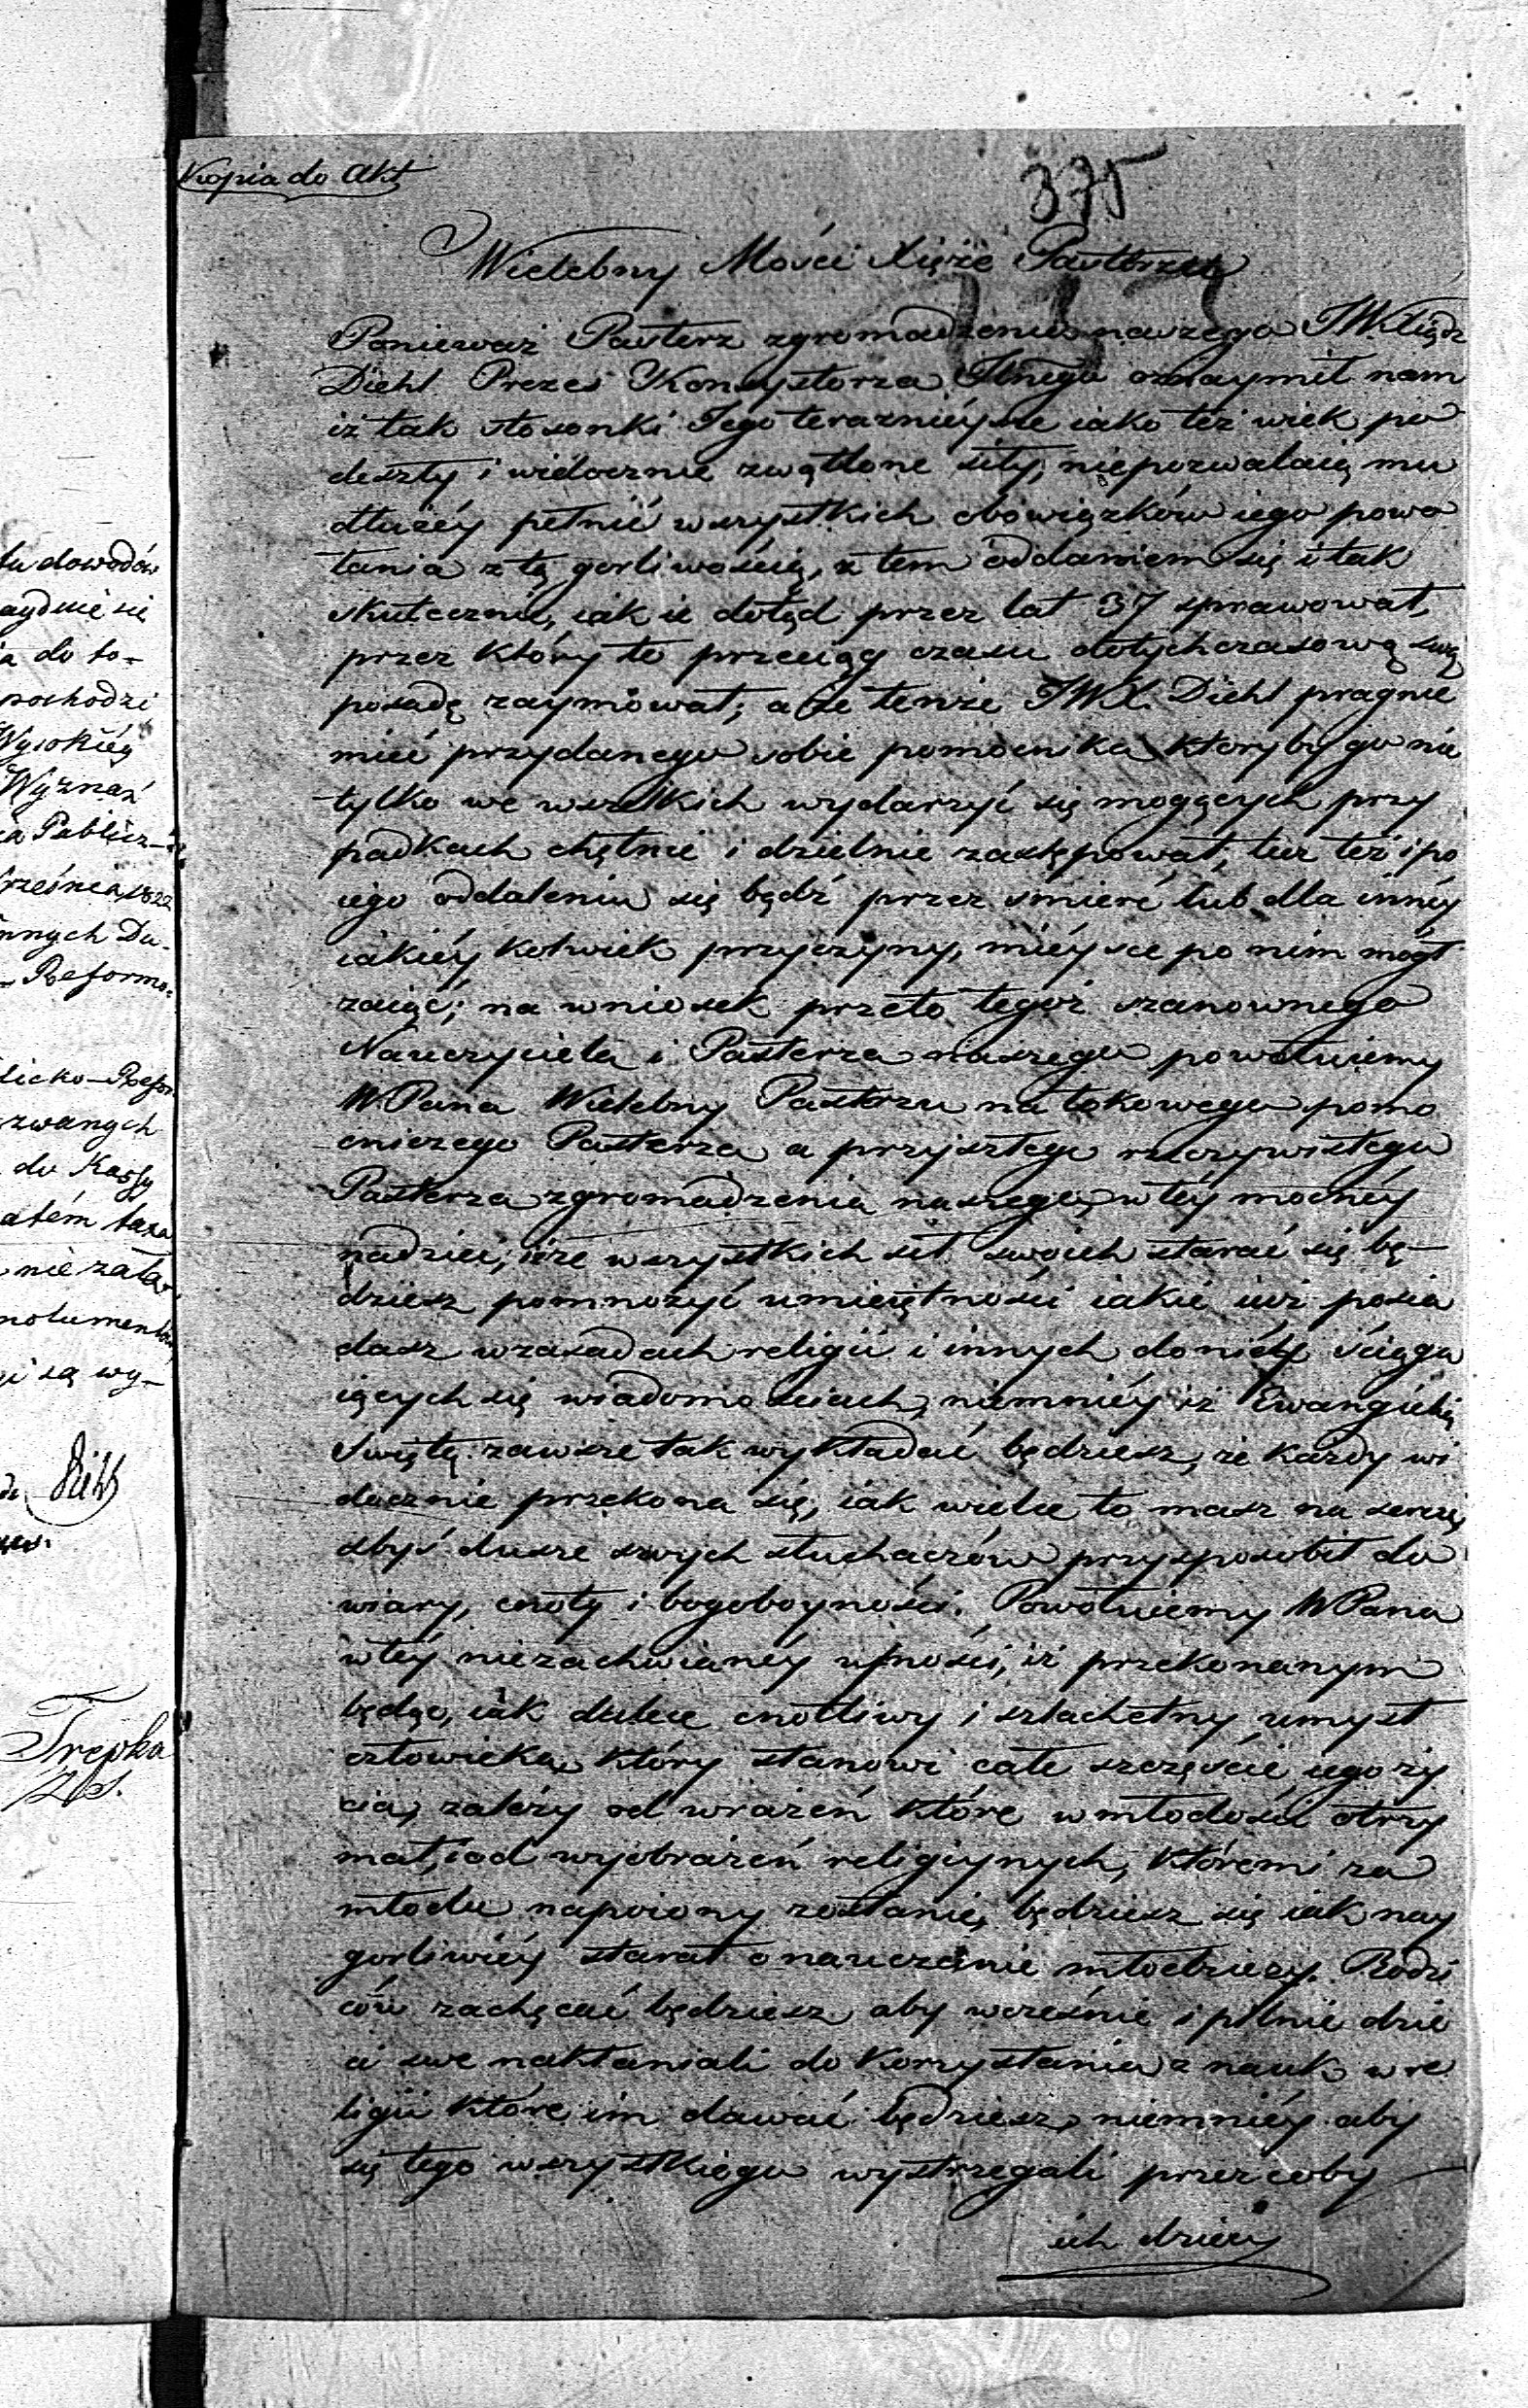 Kopia do Akt
375
Wielebny Mości Xięże Pasterzu
Ponieważ Pasterz zgromadzenia naszego JW. Xiądz
Diehl Prezes Konsystorza Jlnego oznaymił nam
iż tak stosonki Jego teraznieysze iako też wiek po
deszły i widocznie zwątlone siły, niepozwalaią mu
dłużéy pełnić wszystkich obowiązków iego powo
łania z tą gorliwością, z tem oddaniem się i tak
skutecznie, iak ie dotąd przez lat 37 sprawował,
przez który to przeciąg czasu dotychczasową swą
posadę zaymował; a że tenże JWX. Diehl pragnie
mieć przydanego sobie pomocnika któryby go nie
tylko we wszelkich wydarzyć się mogących przy
padkach chętnie i dzielnie zastępował, lecz też i po
iego oddaleniu się bądź przez śmierć lub dla innéy
iakiéy kolwiek przyczyny, miéysce po nim mógł
zaiąć; na wniosek przeto tegoż szanownego
Nauczyciela i Pasterza naszego powołuiemy
WPana Wielebny Pasterzu na takowego pomo
cniczego Pasterza a przyszłego rzeczywistego
Pasterza zgromadzenia naszego, w téy mocnéy
nadziei, iże wszystkich sił swoich starać się bę-
dziesz pomnożyć umieiętności iakie iuż posia
dasz w zasadach religii i innych do niéy ściąga
iących się wiadomościach, niemniéy iż Ewangielią
Swiętą zawsze tak wykładać będziesz, że każdy wi
docznie przekona się, iak wiele to masz na sercu,
abyś dusze swych słuchaczów przysposobił do
wiary, cnoty i bogoboyności. Powołuiemy WPana
w téy niezachwianéy ufności, iż przekonanym
będąc, iak dalece cnotliwy i szlachetny umysł
człowieka, który stanowi całe szczęście iego ży
cia, zależy od wrażeń które w młodości otrzy
mał, i od wyobrażeń religiynych, któremi za
młodu napoiony zostanie, będziesz się iak nay
gorliwiéy starał o nauczanie młodzieży. Rodzi
ców zachęcać będziesz aby wcześnie i pilnie dzie
ci swe nakłaniali do korzystania z nauk w re
ligii które im dawać będziesz, niemniéy aby
się tego wszystkiego wystrzegali przez coby
ich dzieci
dowodów
do to-
pochodzi
Wysokiéy
Wyznań
Publicz-
1822
innych Du-
Reformo-
Refor
zwanych
do Kassy
są wy-
Diehl
Trepka